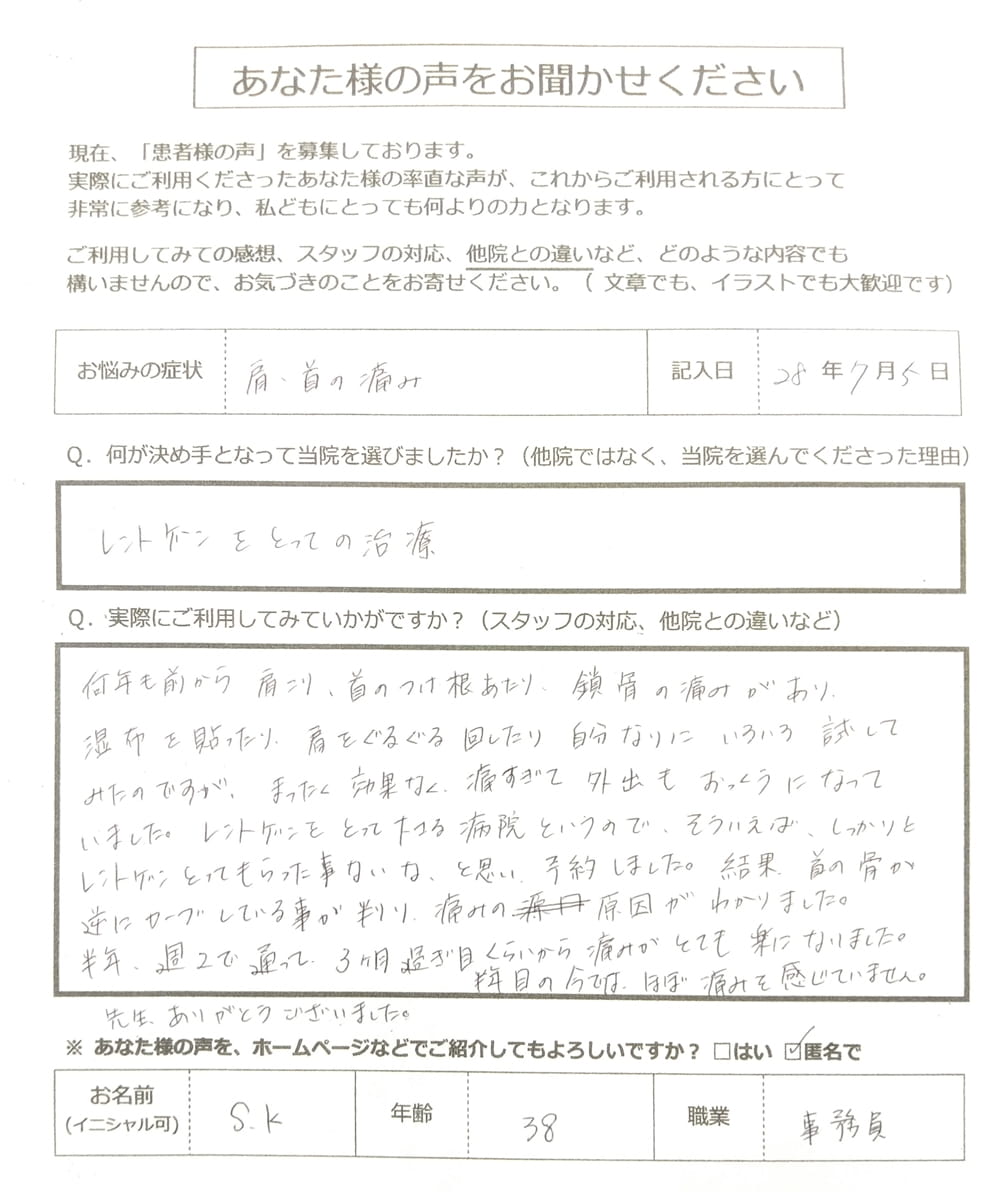 あなた様の声をお聞かせください
現在、「患者様の声」を募集しております。
実際にご利用くださったあなた様の率直な声が、これからご利用される方にとって
非常に参考になり、私どもにとっても何よりの力となります。
ご利用してみての感想、スタッフの対応、他院との違いなど、どのような内容でも
構いませんので、お気づきのことをお寄せください。（ 文章でも、イラストでも大歓迎です）
お悩みの症状 肩、首の痛み 記入日 28年7月5日
Q．何が決め手となって当院を選びましたか？（他院ではなく、当院を選んでくださった理由）
レントゲンをとっての治療
Q．実際にご利用してみていかがですか？（スタッフの対応、他院との違いなど）
何年も前から肩こり、首のつけ根あたり、鎖骨の痛みがあり、
湿布を貼ったり、肩をぐるぐる回したり自分なりにいろいろ試して
みたのですが、まったく効果なく、痛すぎて外出もおっくうになって
いました。レントゲンをとって治る病院というので、そういえば、しっかりと
レントゲンとってもらった事ないな、と思い、予約しました。結果、首の骨が
逆にカーブしている事が判り、痛みの原因がわかりました。
半年、週2で通って、3ヶ月過ぎ目くらいから痛みがとても楽になりました。
半年目の今では、ほぼ痛みを感じていません。
先生、ありがとうございました。
※ あなた様の声を、ホームページなどでご紹介してもよろしいですか？ □はい ☑匿名で
お名前 S.K 年齢 38 職業 事務員
(イニシャル可)